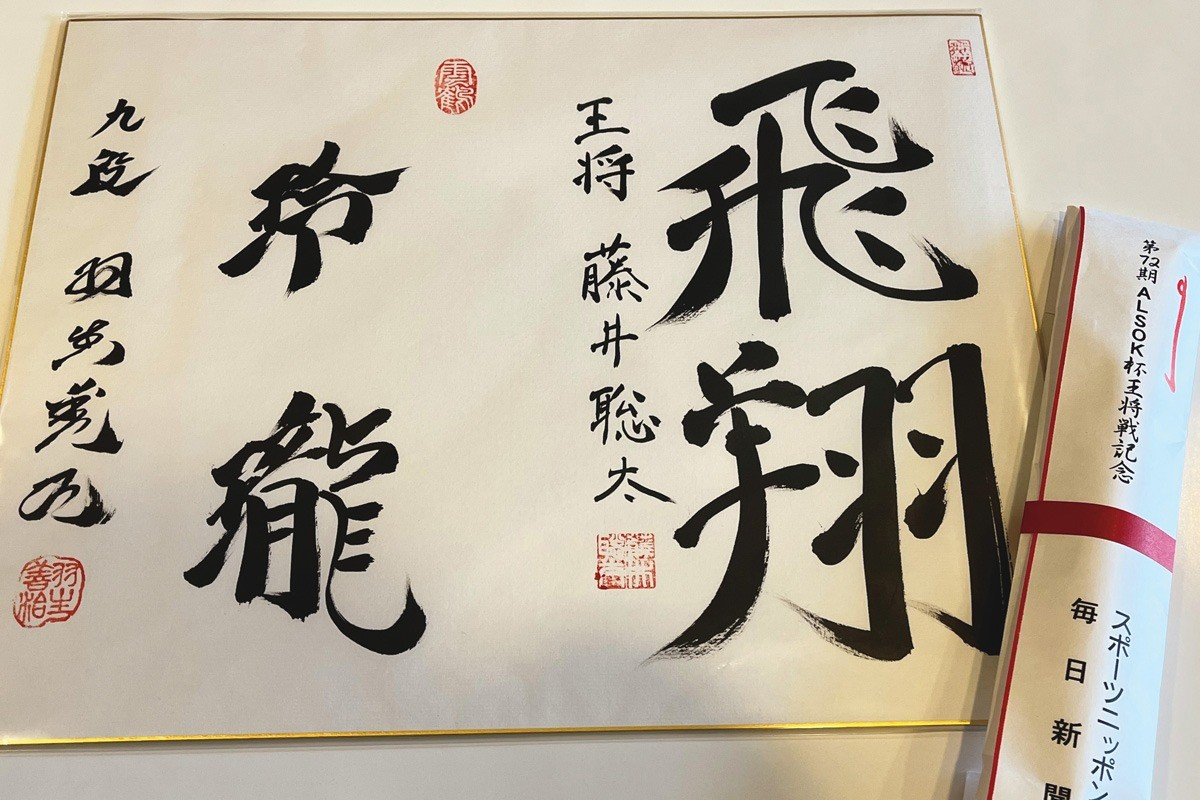 飛翔
王将 藤井聡太
玲瓏
九段 羽生善治
雲鶴
羽生善治
第72期 ALSOK杯王将戦記念
スポーツニッポン
毎日新聞